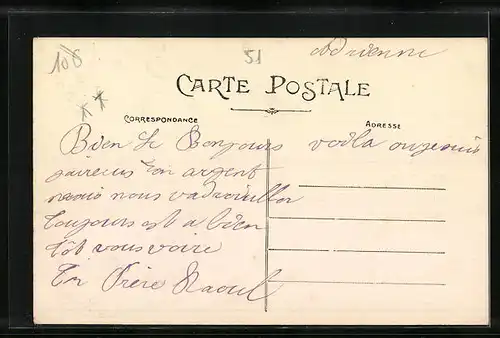 106
51
Adrienne
CARTE POSTALE
CORRESPONDANCE
ADRESSE
Bien le Bonjours voila ou je suis
argent
nous
toujours est a bien
tôt vous voire
Ton Frère Raoul